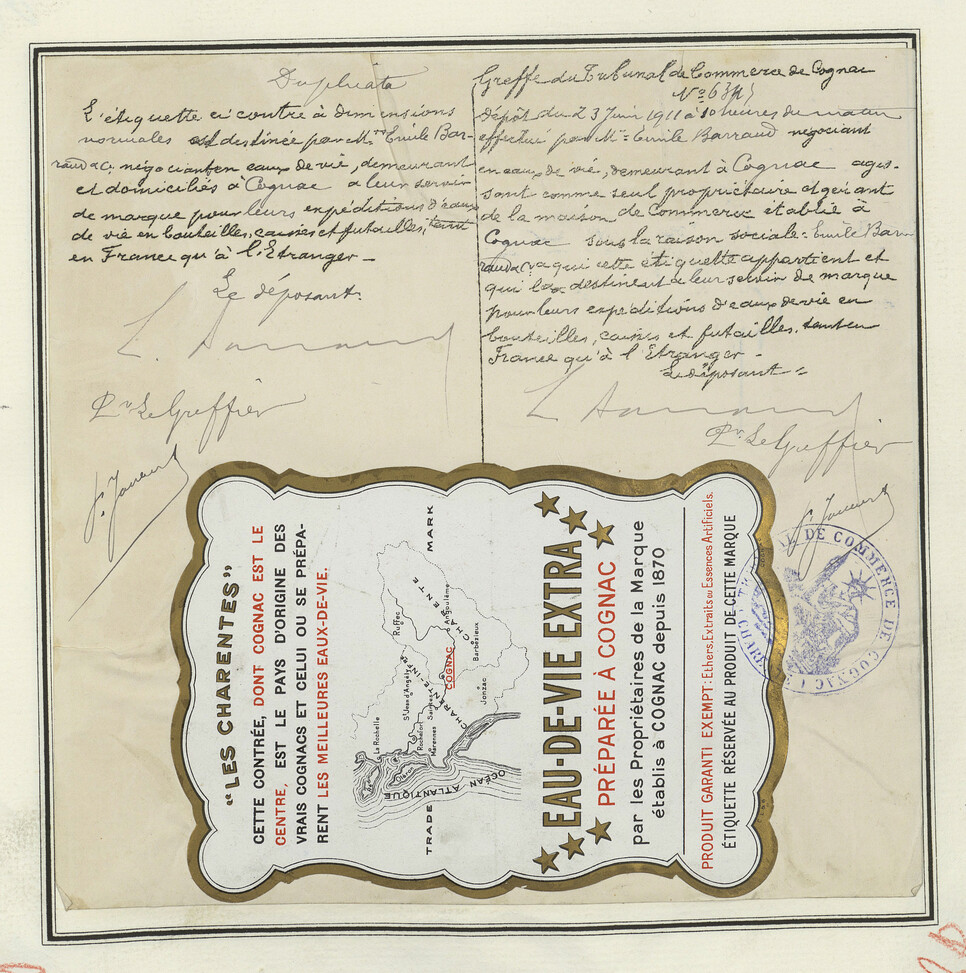 Duplicata
L'étiquette ci contre à dimensions
normales est destinée par Mrs Emile Bar-
raud & Cie négociants en eaux de vie, demeurant
et domiciliés à Cognac a leur servir
de marque pour leurs expéditions d'eaux
de vie en bouteilles, caisses et futailles, tant
en France qu'à l'Etranger -
Le déposant.
Pr Le Greffier
Greffe du Tribunal de Commerce de Cognac
dépôt du 23 Juin 1911 à 10 heures du matin
effectué par Mr Emile Barraud négociant
en eaux de vie, demeurant à Cognac agis-
sant comme seul propriétaire et gérant
de la maison de Commerce établie à
Cognac sous la raison sociale: Emile Bar-
raud & Cie a qui cette étiquette appartient et
qui la destinent a leur servir de marque
pour leurs expéditions d'eaux de vie en
bouteilles, caisses et futailles, tant en
France qu'à l'Etranger -
Le déposant =
Pr Le Greffier
"LES CHARENTES"
CETTE CONTRÉE, DONT COGNAC EST LE
CENTRE, EST LE PAYS D'ORIGINE DES
VRAIS COGNACS ET CELUI OU SE PRÉPA-
RENT LES MEILLEURES EAUX-DE-VIE.
TRADE MARK
La Rochelle
Ruffec
St Jean d'Angély
Rochefort
Saintes
Marennes
Oléron
COGNAC
Angoulême
Barbézieux
Jonzac
CHARENTE
CHARENTE INFRE
OCÉAN ATLANTIQUE
EAU-DE-VIE EXTRA
PRÉPARÉE À COGNAC
par les Propriétaires de la Marque
établis à COGNAC depuis 1870
PRODUIT GARANTI EXEMPT: Ethers, Extraits ou Essences Artificiels.
ÉTIQUETTE RÉSERVÉE AU PRODUIT DE CETTE MARQUE
DE COMMERCE DE COGNAC